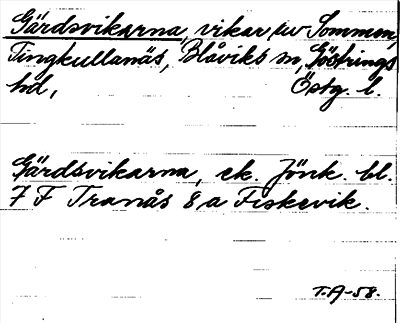 Gärdsvikarna, vikar av Sommen,
Tingkullanäs, Blåviks sn, Göstrings
hd, Östg. l.
Gärdsvikarna, ek. Jönk. bl.
7 F Tranås 8 a Fiskevik.
T.A-58.